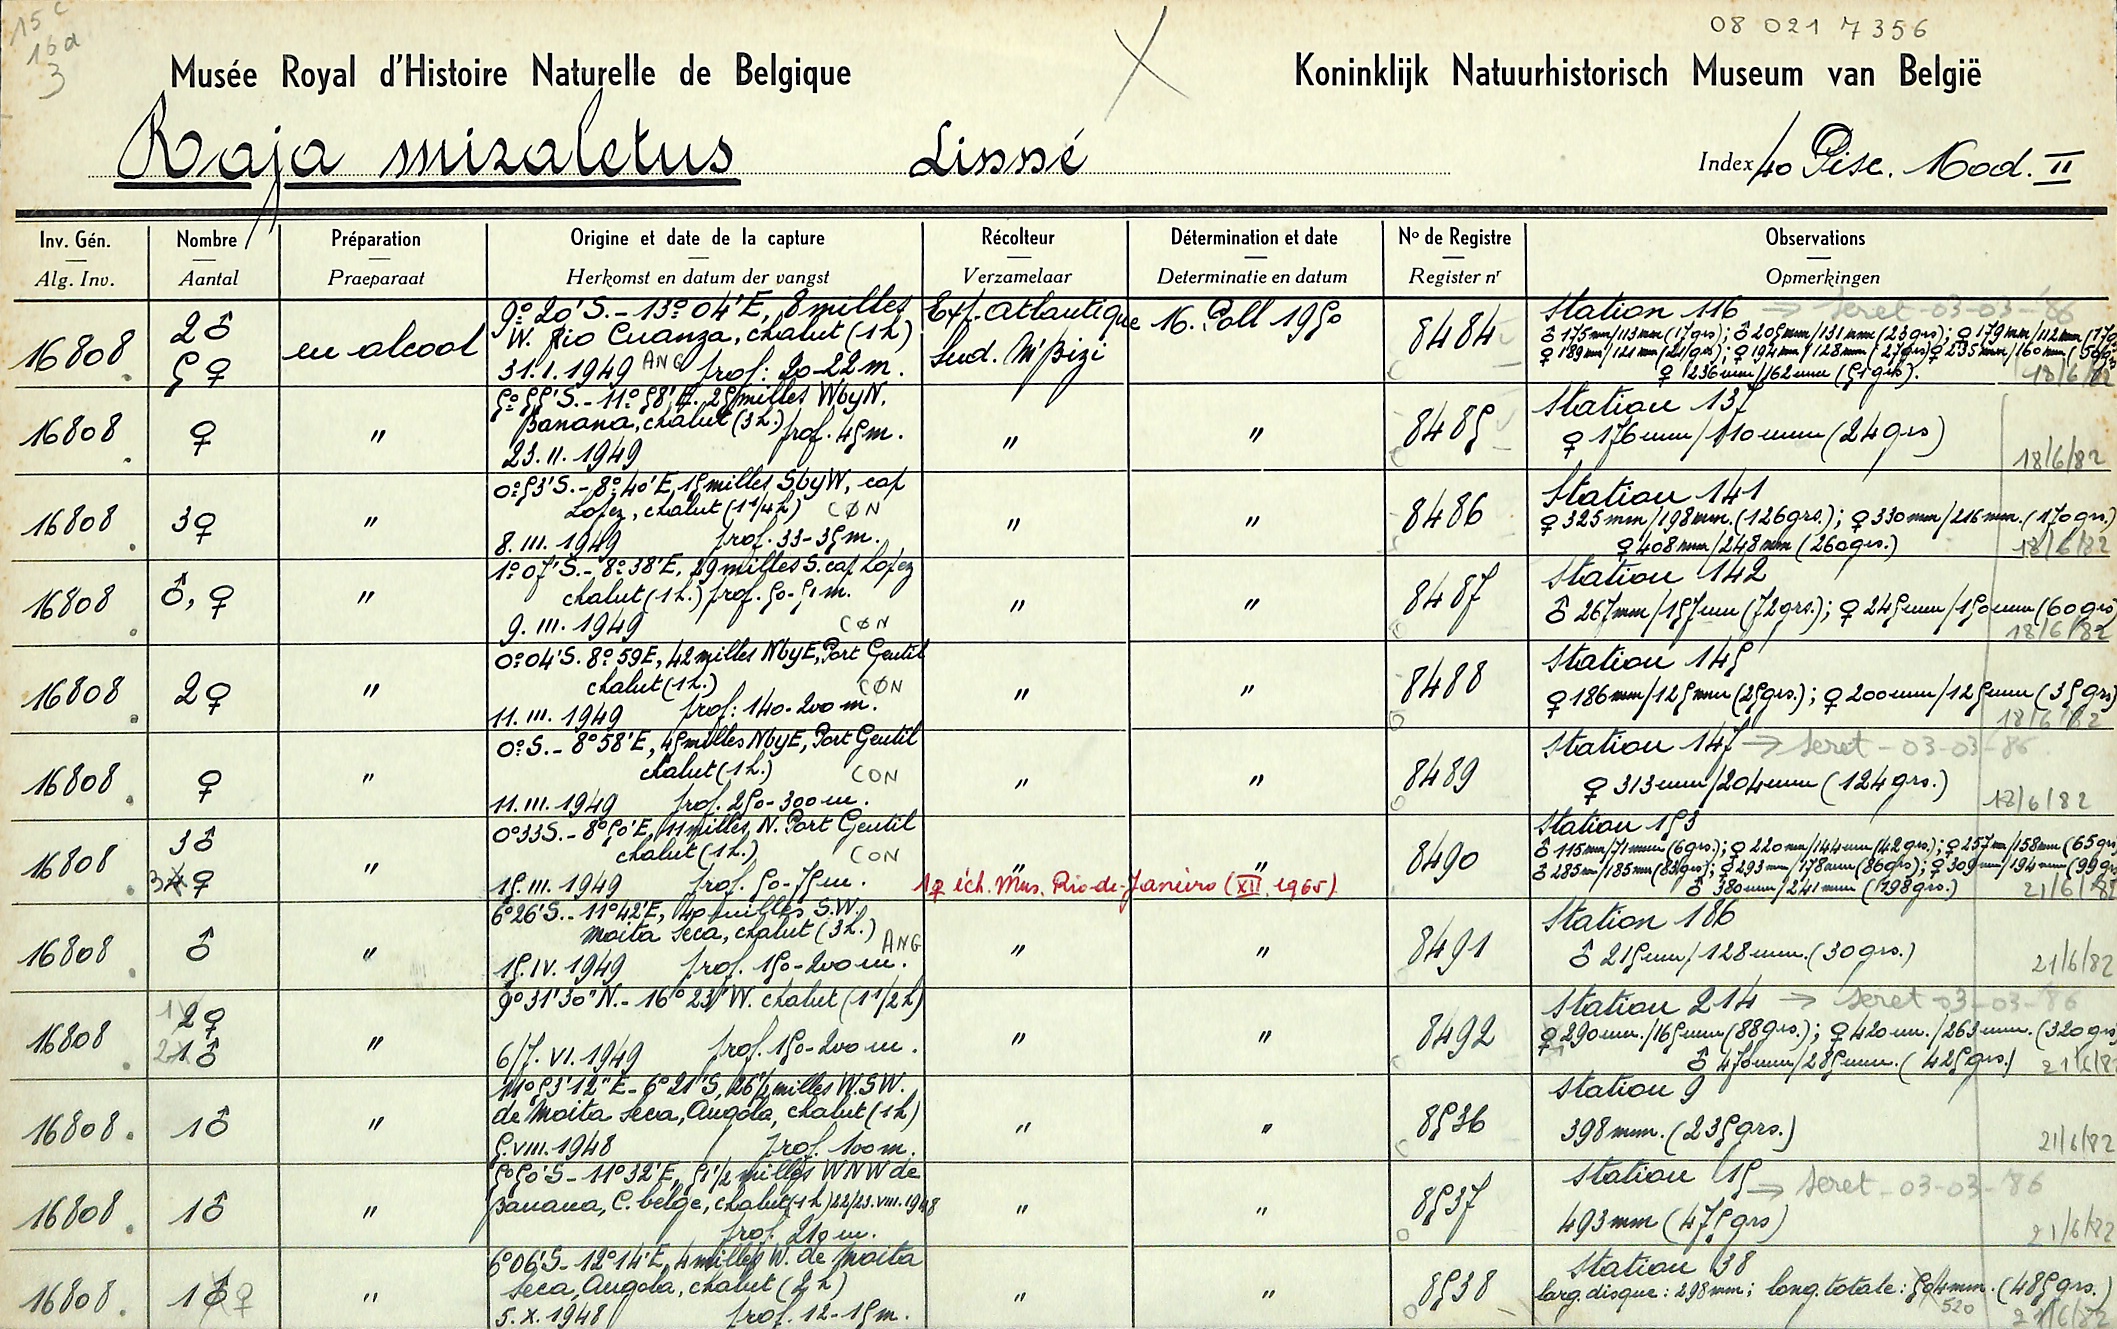 15 c
16 a
3
08 021 7356
Musée Royal d'Histoire Naturelle de Belgique
Koninklijk Natuurhistorisch Museum van België
Raja miraletus Linné
Index 40 Pisc. Mod. II
Inv. Gén. Nombre Préparation Origine et date de la capture Récolteur Détermination et date No de Registre Observations
Alg. Inv. Aantal Praeparaat Herkomst en datum der vangst Verzamelaar Determinatie en datum Register nr Opmerkingen
16808 2♂ 5♀ en alcool
9° 20' S. - 13° 04' E, 8 milles
W. Rio Cuanza, chalut (1h)
31.1.1949 ANG prof: 20-22 m.
Exp. Atlantique
Sud. M'Bizi
16. Poll 1950
8484
Station 116 → Seret - 03-03-'86
♂ 175mm/113mm (17grs); ♂ 205mm/131mm (23grs); ♀ 179mm/112mm (17g
♀ 189mm/121mm (21grs); ♀ 194mm/128mm (27grs) ♀ 235mm/160mm (56grs
♀ 236mm/162mm (51grs).
18/6/82
16808 ♀ "
5° 55' S. - 11° 58' E. 25 milles WbyN.
Banana, chalut (3h.) prof. 45m.
23.II.1949
" " 8485
Station 137
♀ 176mm/110mm (24grs)
18/6/82
16808 3♀ "
0° 53' S. - 8° 40' E, 15 milles SbyW, cap
Lopez, chalut (1 1/4 h) CØN
8.III.1949 prof. 33-35m.
" " 8486
Station 141
♀ 325mm/198mm. (126grs.); ♀ 330mm/216mm. (170grs.)
♀ 408mm/248mm (260grs.)
18/6/82
16808 ♂, ♀ "
1° 07' S. - 8° 38' E, 29 milles S. cap Lopez
chalut (1h.) prof. 50-51m.
9.III.1949 CØN
" " 8487
Station 142
♂ 267mm/157mm (72grs.); ♀ 245mm/150mm (60grs)
18/6/82
16808 2♀ "
0° 04' S. 8° 59 E, 42 milles NbyE, Port Gentil
chalut (1h.) CØN
11.III.1949 prof: 140-200 m.
" " 8488
Station 145
♀ 186mm/125mm (25grs.); ♀ 200mm/125mm (35grs)
18/6/82
16808 ♀ "
0° S. - 8° 58' E, 45 milles NbyE, Port Gentil
chalut (1h.) CON
11.III.1949 prof. 250-300m.
" " 8489
Station 147 → Seret - 03-03-'86
♀ 313mm/204mm (124grs.)
18/6/82
16808 3♂ 3 4♀ "
0° 33 S. - 8° 50' E, 11 milles N. Port Gentil
chalut (1h.) CON
15.III.1949 prof. 50-75m.
" " 8490
1♀ éch. Mus. Rio-de-Janeiro (XII.1965)
Station 153
♂ 115mm/71mm (6grs.); ♀ 220mm/144mm (42grs.); ♀ 257mm/158mm (65grs
♂ 285mm/185mm (83grs); ♀ 293mm/178mm (86grs); ♀ 309mm/194mm (99grs
♂ 380mm/241mm (198grs.)
21/6/82
16808 ♂ "
6° 26' S. - 11° 42' E, 40 milles S.W.
Moita Seca, chalut (3h.) ANG
15.IV.1949 prof. 150-200m.
" " 8491
Station 186
♂ 215mm/128mm. (30grs.)
21/6/82
16808 1 2♀ 2 1♂ "
9° 31' 30" N. - 16° 23' W. chalut (1 1/2 h)
6/7.VI.1949 prof. 150-200m.
" " 8492
Station 214 → Seret - 03-03-'86
♀ 290mm./165mm (88grs.); ♀ 420mm./263mm. (320grs
♂ 470mm/285mm. (425grs.)
21/6/82
16808 1♂ "
11° 53' 12" E - 6° 21" S, 26 1/2 milles W.S.W.
de Moita Seca, Angola, chalut (1h)
5.VIII.1948 prof. 100m.
" " 8536
Station 9
398mm. (235grs.)
21/6/82
16808 1♂ "
5° 50' S - 11° 32' E, 51 1/2 milles WNW de
Banana, C. belge, chalut (1h) 22/23.VIII.1948
prof. 210m.
" " 8537
Station 15 → Seret - 03-03-'86
493mm (475grs)
21/6/82
16808 1♂ ♀ "
6° 06' S - 12° 14' E, 4 milles W. de Moita
Seca, Angola, chalut (2h)
5.X.1948 prof. 12-15m.
" " 8538
Station 38
larg. disque: 298mm; long. totale: 504mm. (485grs.)
520
21/6/82